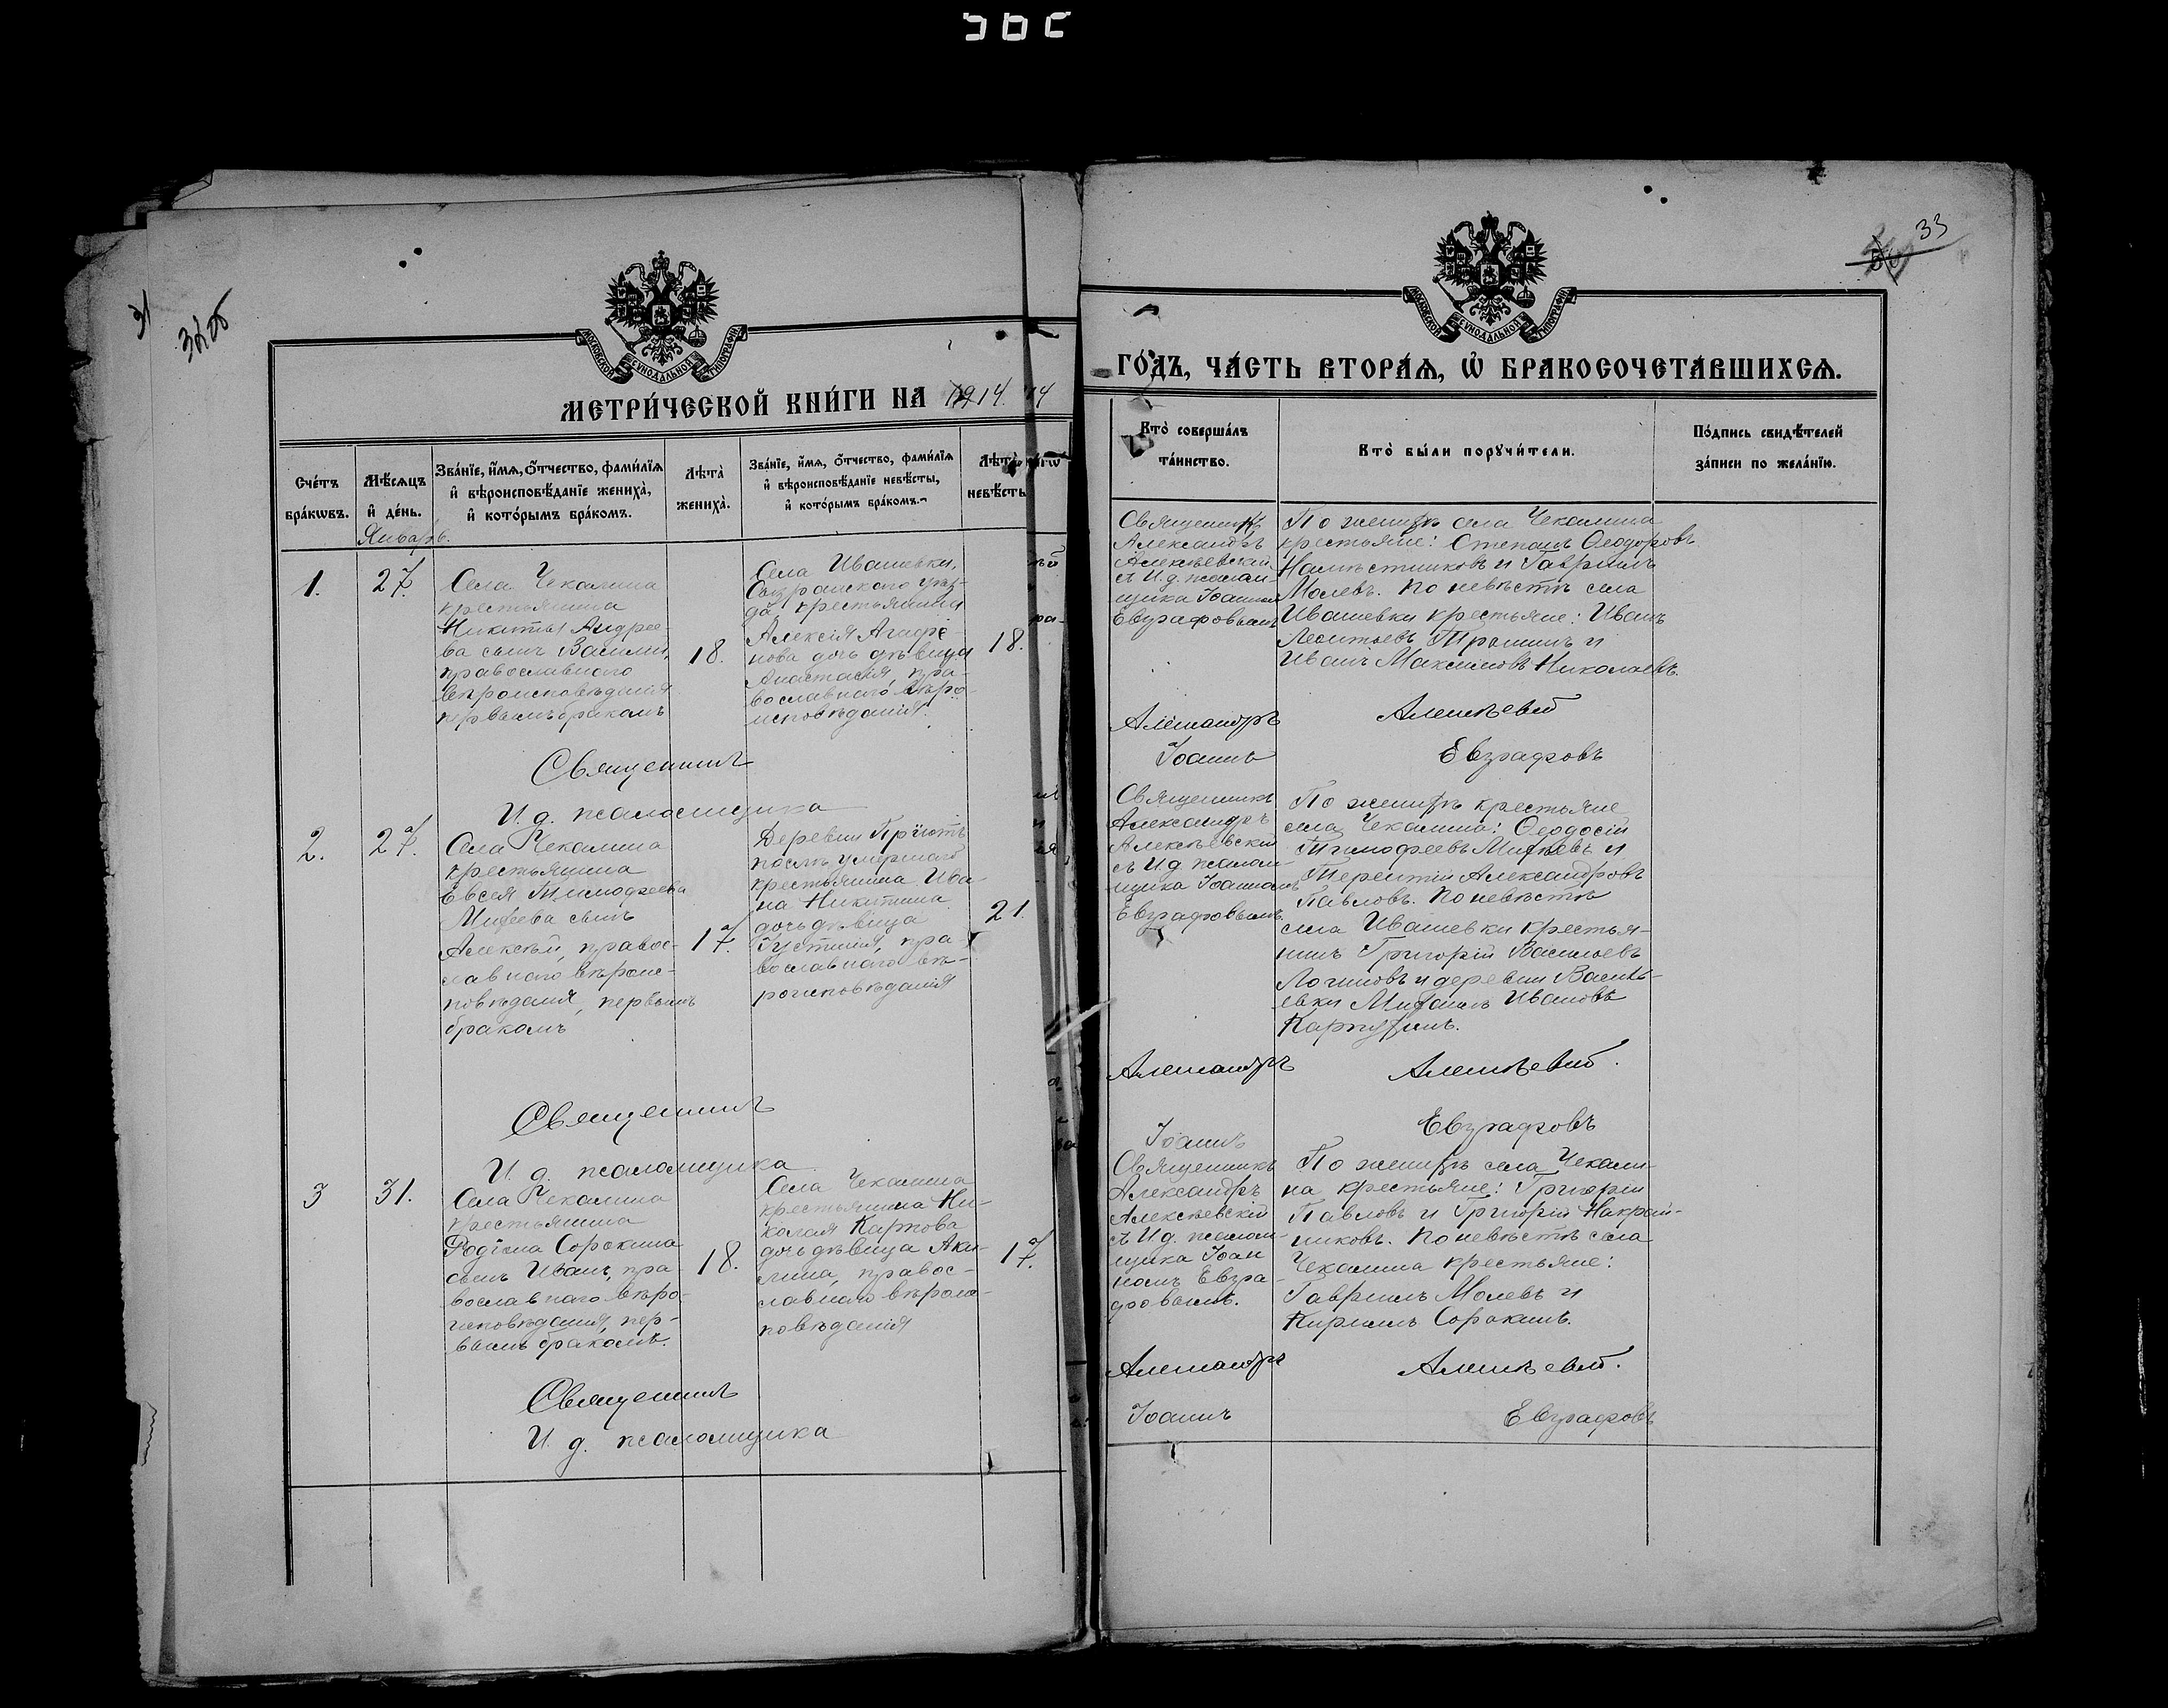 33
МОСКОВСКОЙ СУНОДАЛЬНОЙ ТИПОГРАФІИ
МОСКОВСКОЙ СУНОДАЛЬНОЙ ТИПОГРАФІИ
МЕТРИ́ЧЕСКОЙ КНИ́ГИ НА 1914
ГО́ДЪ, ЧА́СТЬ ВТОРА́Ѧ, Ѡ҆ БРАКОСОЧЕТА́ВШИХСѦ.
Сче́тъ
бра́кѡвъ.
Мѣ́сѧцъ
и҆ де́нь.
Зва́нїе, и҆́мѧ, ѻ҆́тчество, фами́лїѧ
и҆ вѣроисповѣ́данїе жениха̀,
и҆ кото́рымъ бра́комъ.
Лѣта̀
жениха̀.
Зва́нїе, и҆́мѧ, ѻ҆́тчество, фами́лїѧ
и҆ вѣроисповѣ́данїе невѣ́сты,
и҆ кото́рымъ бра́комъ.
Лѣта̀
невѣ́сты
Кто̀ соверша́лъ
та́инство.
Кто̀ бы́ли порꙋчи́тели.
По́дпись свидѣ́телей
за́писи по жела́нїю.
Январь.
1.
27.
Села Чекалина
крестьянина
Никиты Андрее-
ва сынъ Василий,
православнаго
вѣроисповѣданія
первымъ бракомъ
18.
Села Ивашевки,
Сызранскаго уѣз-
да крестьянина
Алексія Агафо-
нова дочь дѣвица
Анастасія, пра-
вославнаго вѣро-
исповѣданія.
18.
Священникъ
Александръ
Алексѣевскій
съ И.д. псалом-
щика Іоанномъ
Евграфовымъ
По женихѣ села Чекалина
крестьяне: Степанъ Ѳеодоровъ
Намѣстниковъ и Гавріилъ
Молевъ. По невѣстѣ села
Ивашевки крестьяне: Иванъ
Леонтьевъ Трошинъ и
Иванъ Максимовъ Николаевъ.
Священникъ
Александръ
Алексѣевскій
И.д. псаломщика
Іоаннъ
Евграфовъ
2.
27.
Села Чекалина
крестьянина
Евсея Тимофеева
Михеева сынъ
Алексѣй, правос-
лавнаго вѣроис-
повѣданія, первымъ
бракомъ
17.
Деревни Пріютъ
послѣ умершаго
крестьянина Ива-
на Никитина
дочь дѣвица
Іустинія, пра-
вославнаго вѣ-
роисповѣданія
21.
Священникъ
Александръ
Алексѣевскій
съ И.д. псалом-
щика Іоанномъ
Евграфовымъ.
По женихѣ крестьяне
села Чекалина: Ѳеодосій
Тимофеевъ Михѣевъ и
Терентій Александровъ
Павловъ. По невѣстѣ
села Ивашевки крестья-
нинъ Григорій Васильевъ
Логиновъ и деревни Василь-
евки Михаилъ Ивановъ
Карпухинъ.
Священникъ
Александръ
Алексѣевскій.
И. д. псаломщика
Іоаннъ
Евграфовъ
3
31.
Села Чекалина
крестьянина
Родіона Сорокина
сынъ Иванъ, пра-
вославнаго вѣро-
исповѣданія, пер-
вымъ бракомъ.
18.
Села Чекалина
крестьянина Ни-
колая Карпова
дочь дѣвица Аки-
лина, правос-
лавнаго вѣроис-
повѣданія
17.
Священникъ
Александръ
Алексѣевскій
съ И.д. псалом-
щика Іоан
номъ Евгра-
фовымъ.
По женихѣ села Чекали-
на крестьяне: Григорій
Павловъ и Григорій Накрай-
никовъ. По невѣстѣ села
Чекалина крестьяне:
Гавріилъ Молевъ и
Кириллъ Сорокинъ.
Священникъ
Александръ
Алексѣевскій.
И. д. псаломщика
Іоаннъ
Евграфовъ